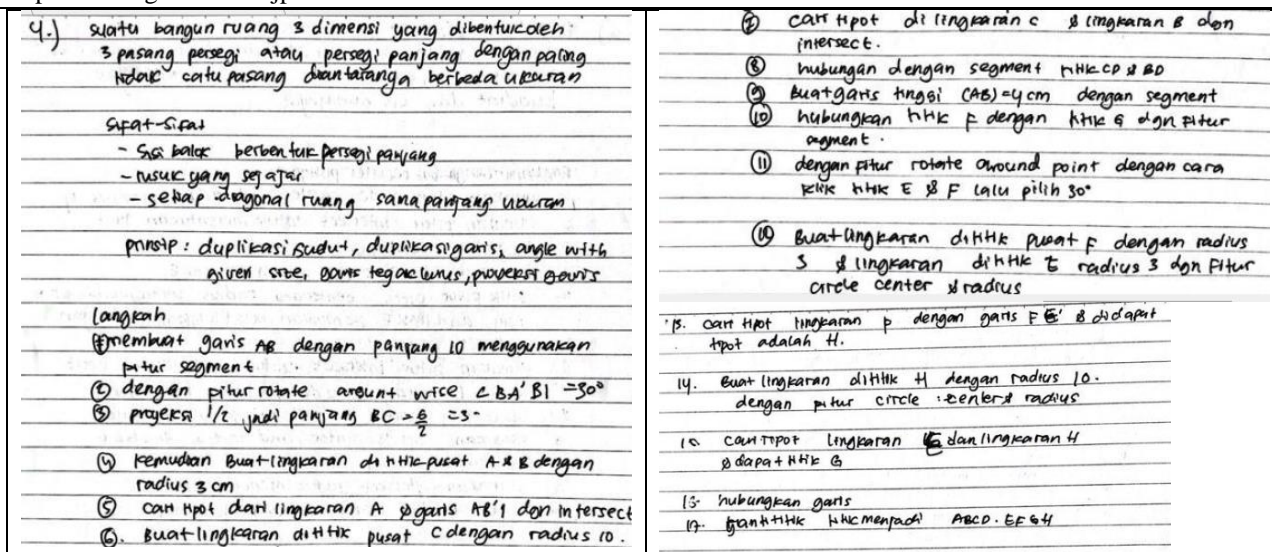 4.) suatu bangun ruang 3 dimensi yang dibentuk oleh
3 pasang persegi atau persegi panjang dengan paling
tidak catu pasang diantaranya berbeda ukuran
Sifat-Sifat
- Sisi balok berbentuk persegi panjang
- rusuk yang sejajar
- setiap diagonal ruang sama panjang ukuran
prinsip : duplikasi sudut, duplikasi garis, angle with
given size, garis tegak lurus, proyeksi garis
langkah
① membuat garis AB dengan panjang 10 menggunakan
pitur segment
② dengan pitur rotate wise < BA'B1 = 30°
③ proyeksi 1/2 jadi panjang BC = 6/2 = 3
④ kemudian Buat lingkaran di titik pusat A & B dengan
radius 3 cm
⑤ cari tipot dari lingkaran A & garis AB'1 dgn intersect
⑥. Buat lingkaran dititik pusat C dengan radius 10.
⑦ cari tipot di lingkaran C & lingkaran B dgn
intersect.
⑧ hubungan dengan segment titik CD & BD
⑨ Buat garis tinggi (AB) = 4 cm dengan segment
⑩ hubungkan titik F dengan titik G dgn fitur
segment.
⑪ dengan fitur rotate around point dengan cara
klik titik E & F lalu pilih 30°
Buat lingkaran dititik pusat F dengan radius
3 & lingkaran dititik E radius 3 dgn Fitur
circle center & radius
13. cari tipot lingkaran F dengan garis FE' & didapat
tpot adalah H.
14. Buat lingkaran dititik H dengan radius 10.
dengan pitur circle : center & radius
15 cari tipot lingkaran E dan lingkaran H
& dapat titik G
hubungkan garis
17. ganti titik titik menjadi ABCD.EFGH